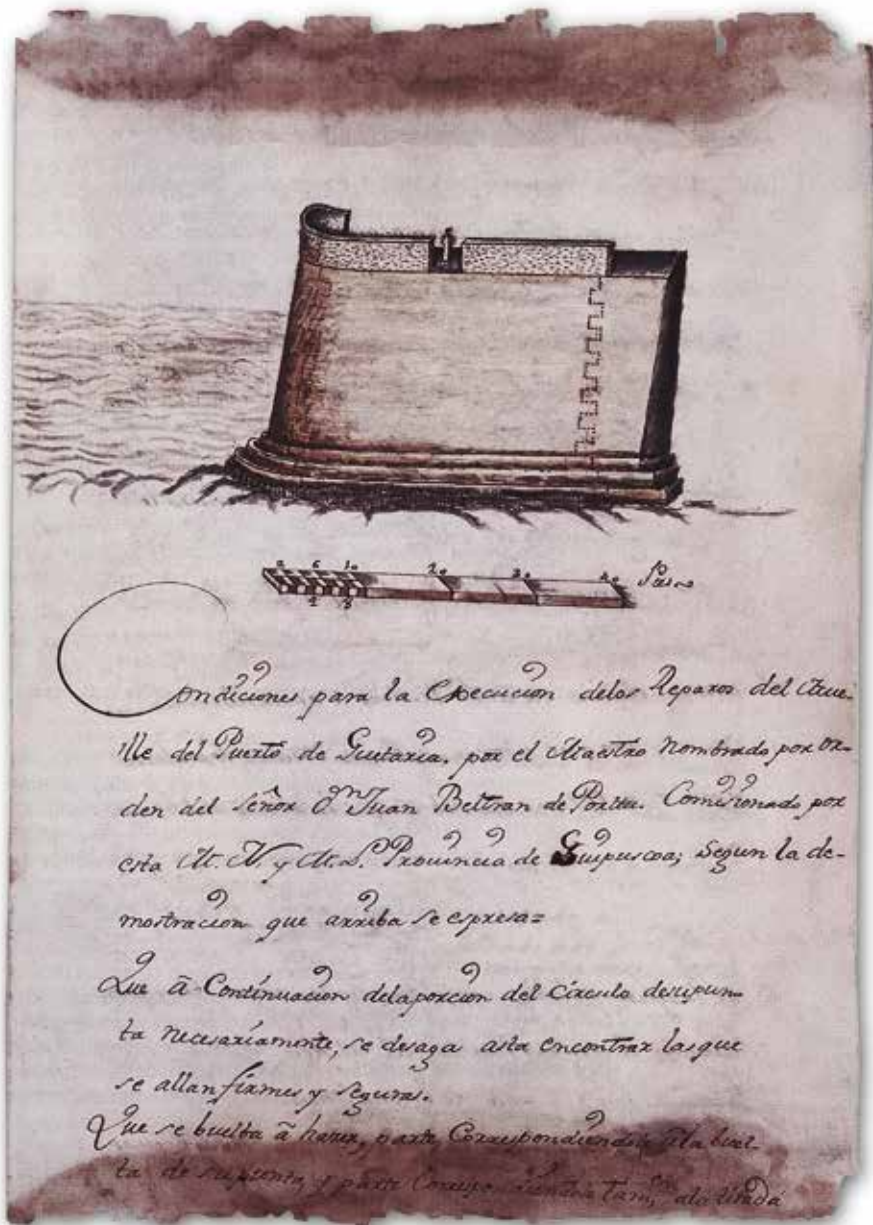 2 6 10 20 30 40 Pies
4 8
Condiciones para la Execucion delos Reparos del Mue-
lle del Puerto de Guetaria. por el Maestro Nombrado por or-
den del Señor Dn Juan Beltran de Portu. Comisionado por
esta M. N. y M. L. Prouincia de Guipuscoa; Segun la de-
mostracion que arriba se espresa=
Que â Continuacion dela porcion del Circulo desupun-
ta necesariamente, se desaga asta encontrar las que
se allan firmes y seguras.
Que se buelba â hazer, parte Correspondiendole â la buel-
ta de supunta, y parte Correspondiendole tamn. ala tirada